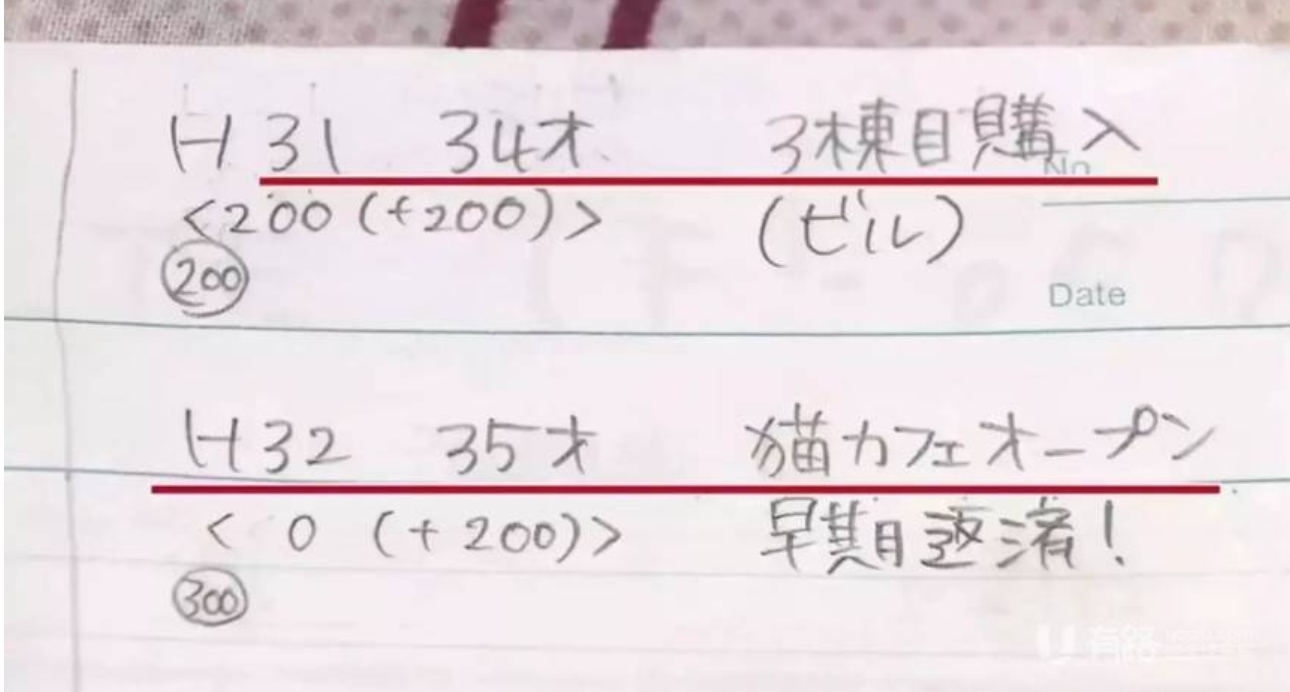 H31 34才 3棟目購入
No
<200(+200)> (ビル)
200
Date
H32 35才 猫カフェオープン
< 0 (+200)> 早期返済!
300
有路